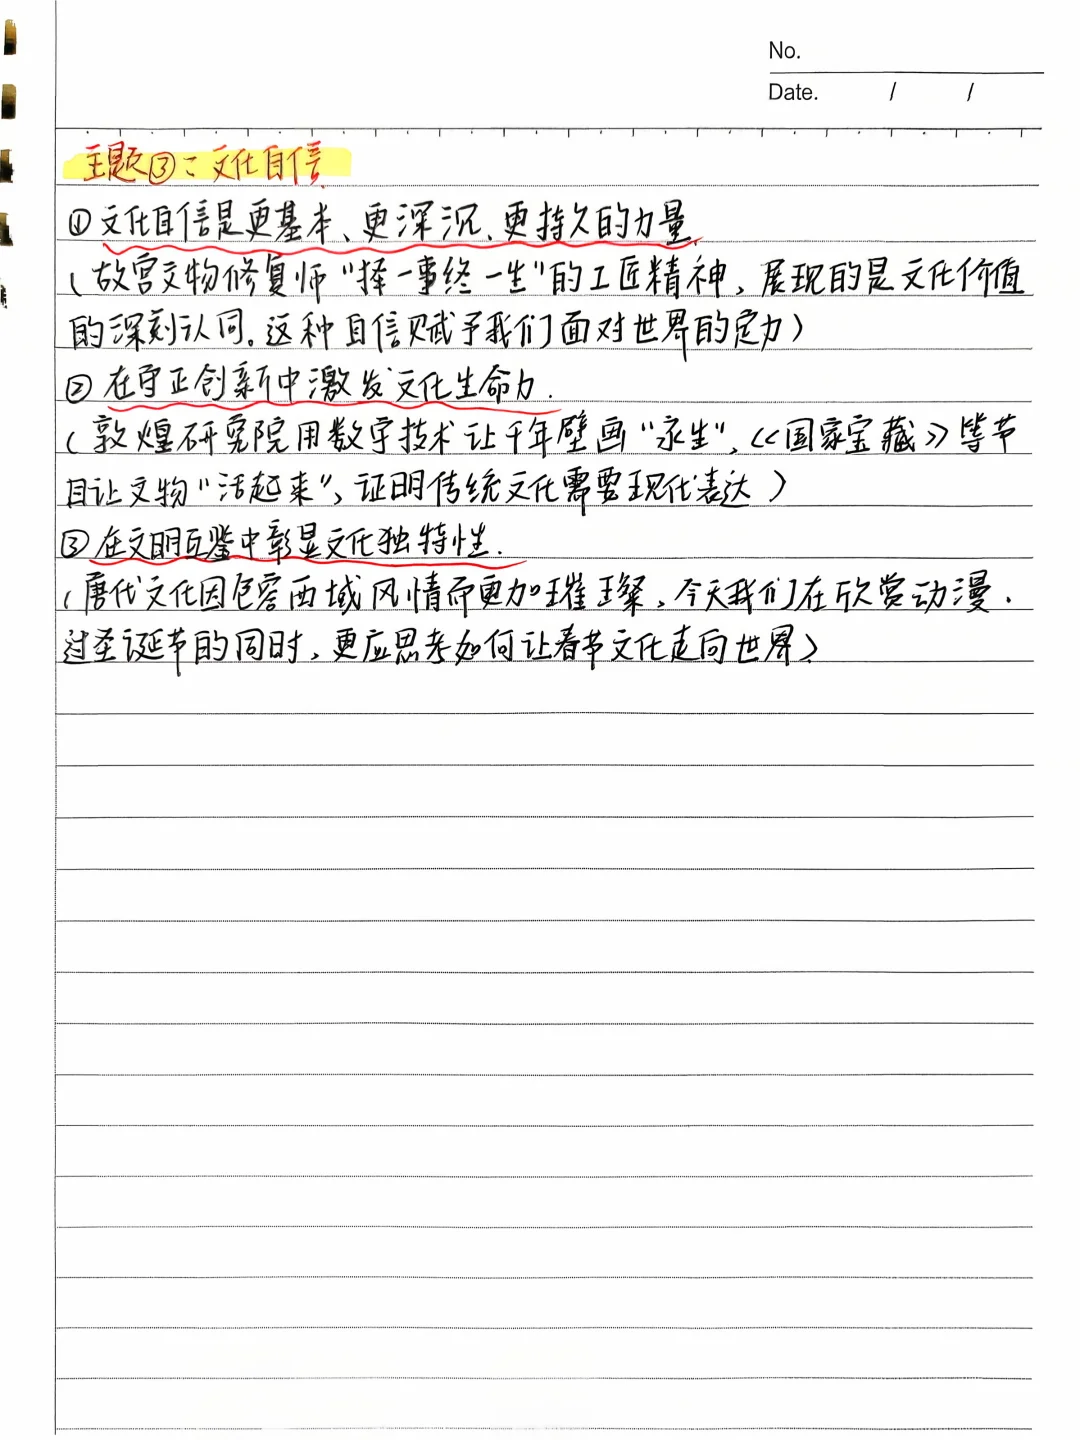 No.
Date. / /
主题③：文化自信
①文化自信是更基本、更深沉、更持久的力量.
(故宫文物修复师“择一事终一生”的工匠精神、展现的是文化价值
的深刻认同。这种自信赋予我们面对世界的定力)
②在守正创新中激发文化生命力.
(敦煌研究院用数字技术让千年壁画“永生”、《国家宝藏》等节
目让文物“活起来”、证明传统文化需要现代表达)
③在文明互鉴中彰显文化独特性.
(唐代文化因包容西域风情而更加璀璨、今天我们在欣赏动漫.
过圣诞节的同时、更应思考如何让春节文化走向世界)